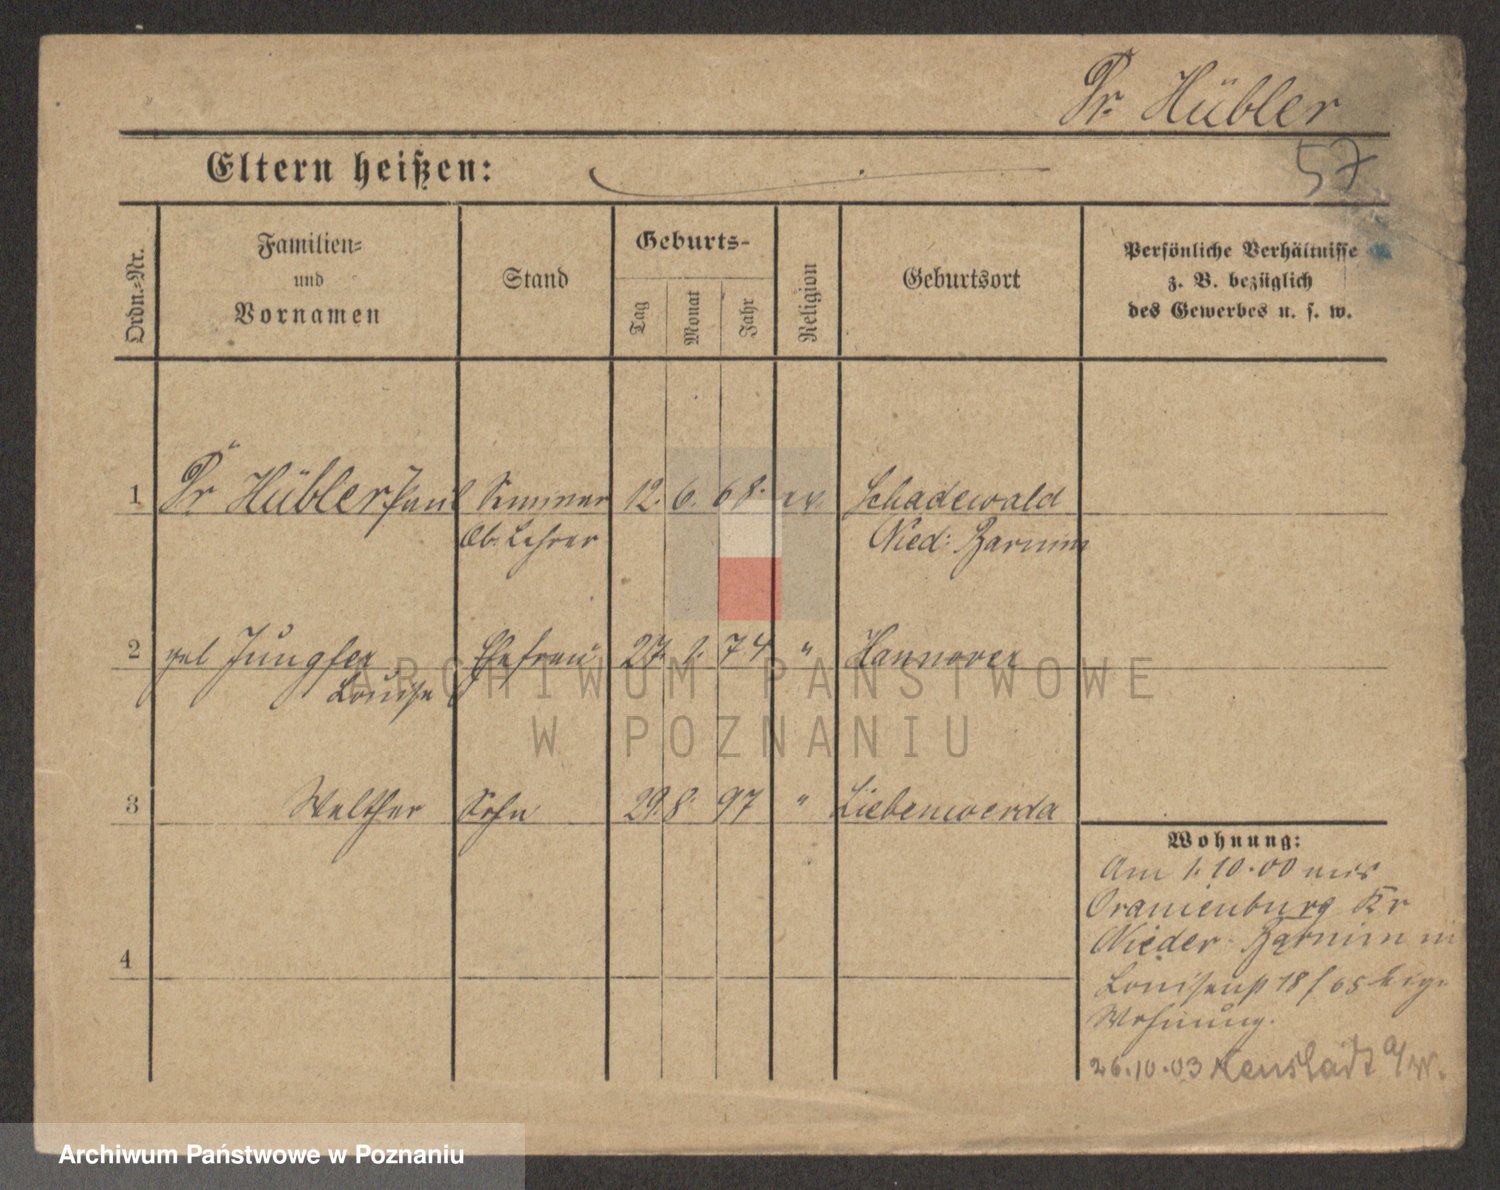 Dr. Hübler
57
Eltern heißen:
Ordn.-Nr.
Familien-
und
Vornamen
Stand
Geburts-
Tag
Monat
Jahr
Religion
Geburtsort
Persönliche Verhältnisse
z. B. bezüglich
des Gewerbes u. s. w.
1 Dr Hübler Paul Seminar 12. 6. 68. ev. Schadewald
Ob. Lehrer Nied: Barnim
2 geb Jungfer Ehefrau 27. 1. 74 " Hannover
Louise
3 Walther Sohn 29. 8. 97 " Liebenwerda
4
Wohnung:
Am 1.10.00 aus
Oranienburg Kr
Nieder-Barnim in
Louisenst 18
Wohnung.
26.10.03 Neustadt a/W.
ARCHIWUM PAŃSTWOWE
W POZNANIU
Archiwum Państwowe w Poznaniu